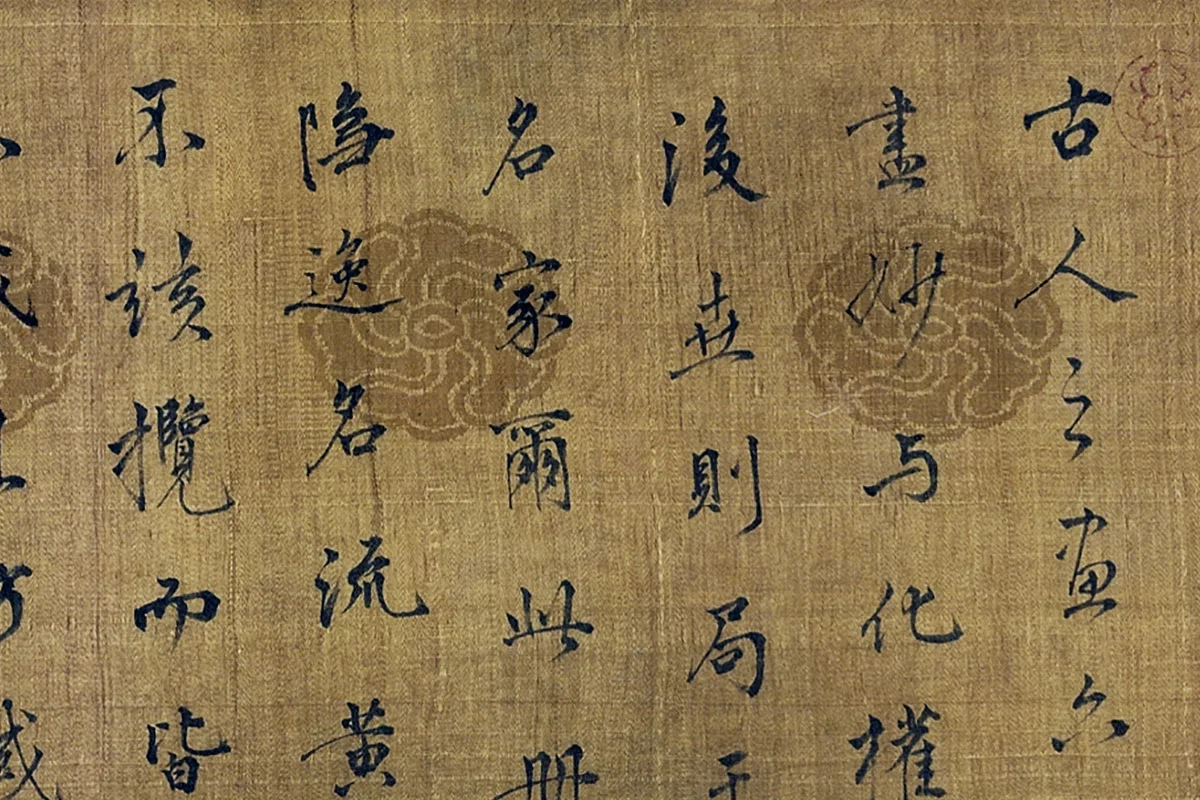 古人之画六
盡妙与化權
後世則局于
名家爾此冊
隐逸名流黄
不該攬而皆